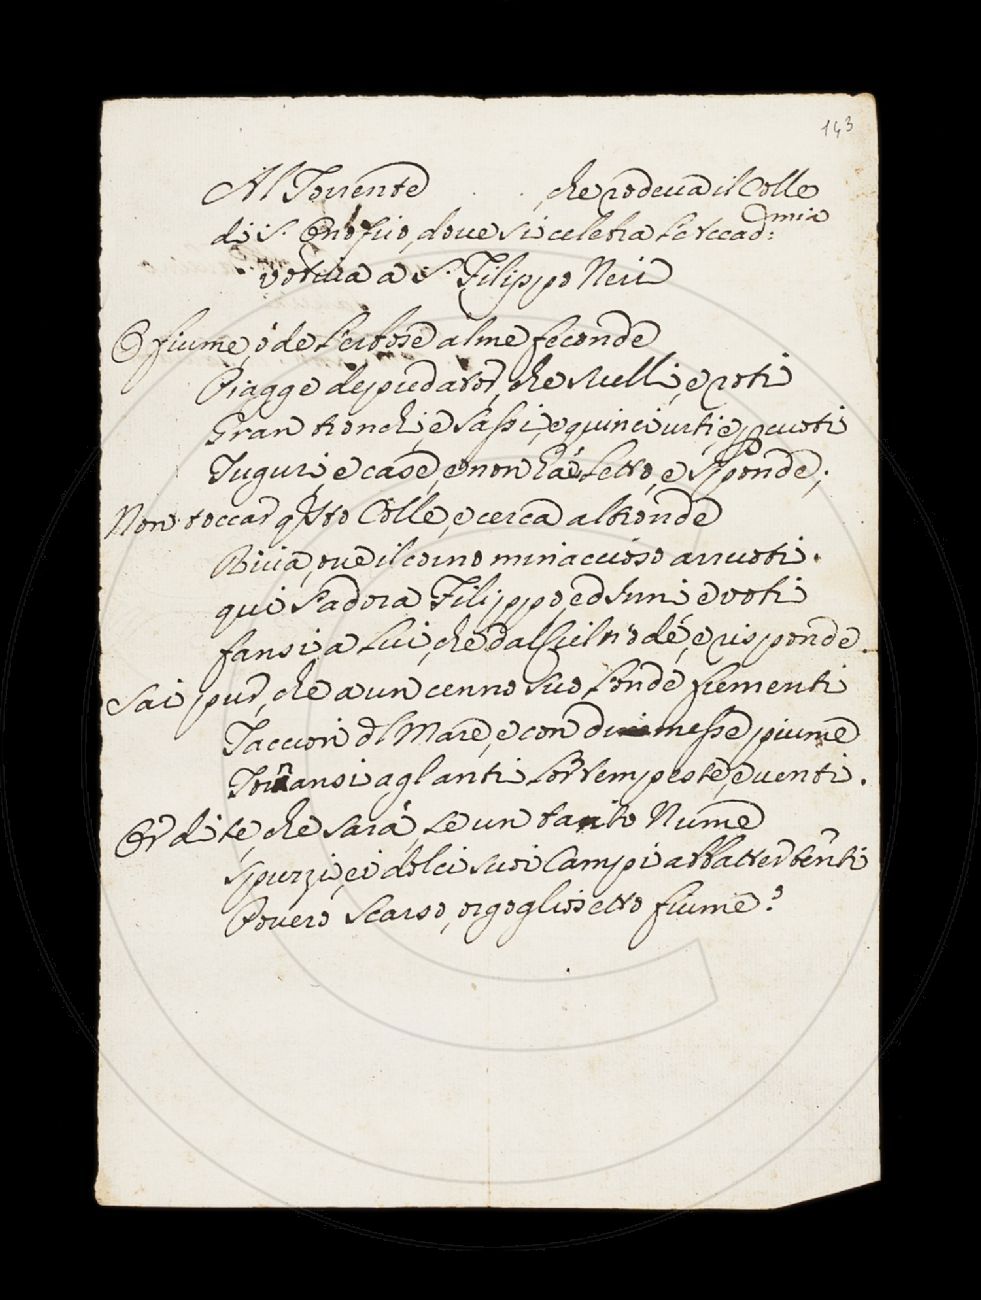 143
Al Torrente che rodeva il Colle
di S. Onofrio, dove si celebra l'Accad:mia
votiva a S. Filippo Neri
O fiume, ò de l'erbose alme feconde
Piagge depredator, che svelli, e roti
Gran tronchi, e sassi, e quinci urti, e pcuoti
Tuguri e case, e non hai Letto, e sponde;
Non toccar qsto Colle, e cerca altronde
Riva, ove il corno minaccioso arruoti.
qui s'adora Filippo ed Inni e voti
fansi, a Lui, che dal Ciel n'ode, e risponde.
Sai pur, che a un cenno suo l'onde frementi
Taccion dl Mare, e con dimesse piume
Tornansi agl'antri lor tempeste, e venti.
Or di te, che sarà, se un tanto Nume
Sprezzi, e i dolci suoi Campi abbatter tenti
Povero scarso, orgogliosetto fiume?